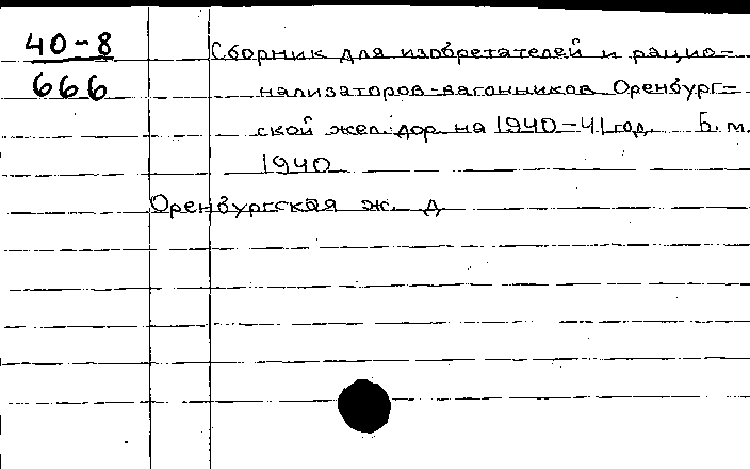 40-8
666
Сборник для изобретателей и рацио=
нализаторов-вагонников Оренбург=
ской жел. дор. на 1940-41 год. Б. м.
1940
Оренбургская ж. д